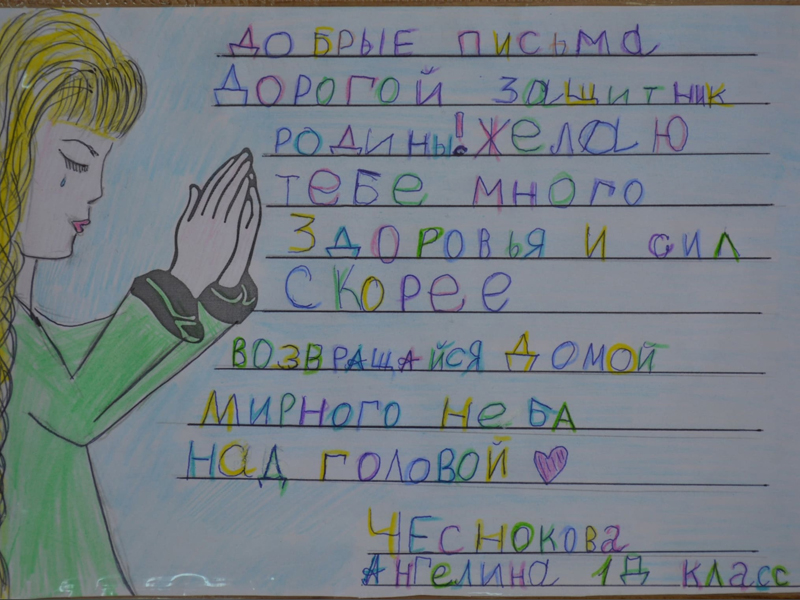 ДОБРЫЕ ПИСЬМА
ДОРОГОЙ ЗАЩИТНИК
РОДИНЫ! ЖЕЛАЮ
ТЕБЕ МНОГО
ЗДОРОВЬЯ И СИЛ
СКОРЕЕ
ВОЗВРАЩАЙСЯ ДОМОЙ
МИРНОГО НЕБА
НАД ГОЛОВОЙ
ЧЕСНОКОВА
АНГЕЛИНА 1Д КЛАСС